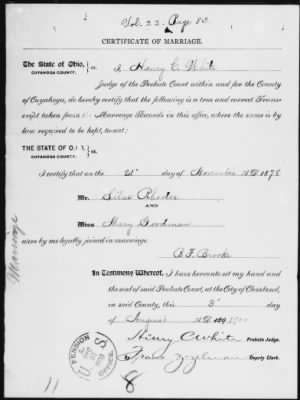 Vol. 22 - Page 83
CERTIFICATE OF MARRIAGE.
The State of Ohio, } ss.
CUYAHOGA COUNTY.
I, Henry C. White
Judge of the Probate Court within and for the County
of Cuyahoga, do hereby certify that the following is a true and correct Trans-
cript taken from the Marriage Records in this office, where the same is by
law required to be kept, to-wit:
THE STATE OF O. } ss.
CUYAHOGA COUNTY.
I certify that on the 21st day of November A.D. 1878
Mr. Silas Rhodes
AND
Miss Mary Goodman
were by me legally joined in marriage.
B. F. Brooke
In Testimony Whereof, I have hereunto set my hand and
the seal of said Probate Court, at the City of Cleveland,
in said County, this 3" day
of August A.D. 1900
Henry C White Probate Judge.
Deputy Clerk.
Marriage
PENSION
OFFICE
U S
11
8